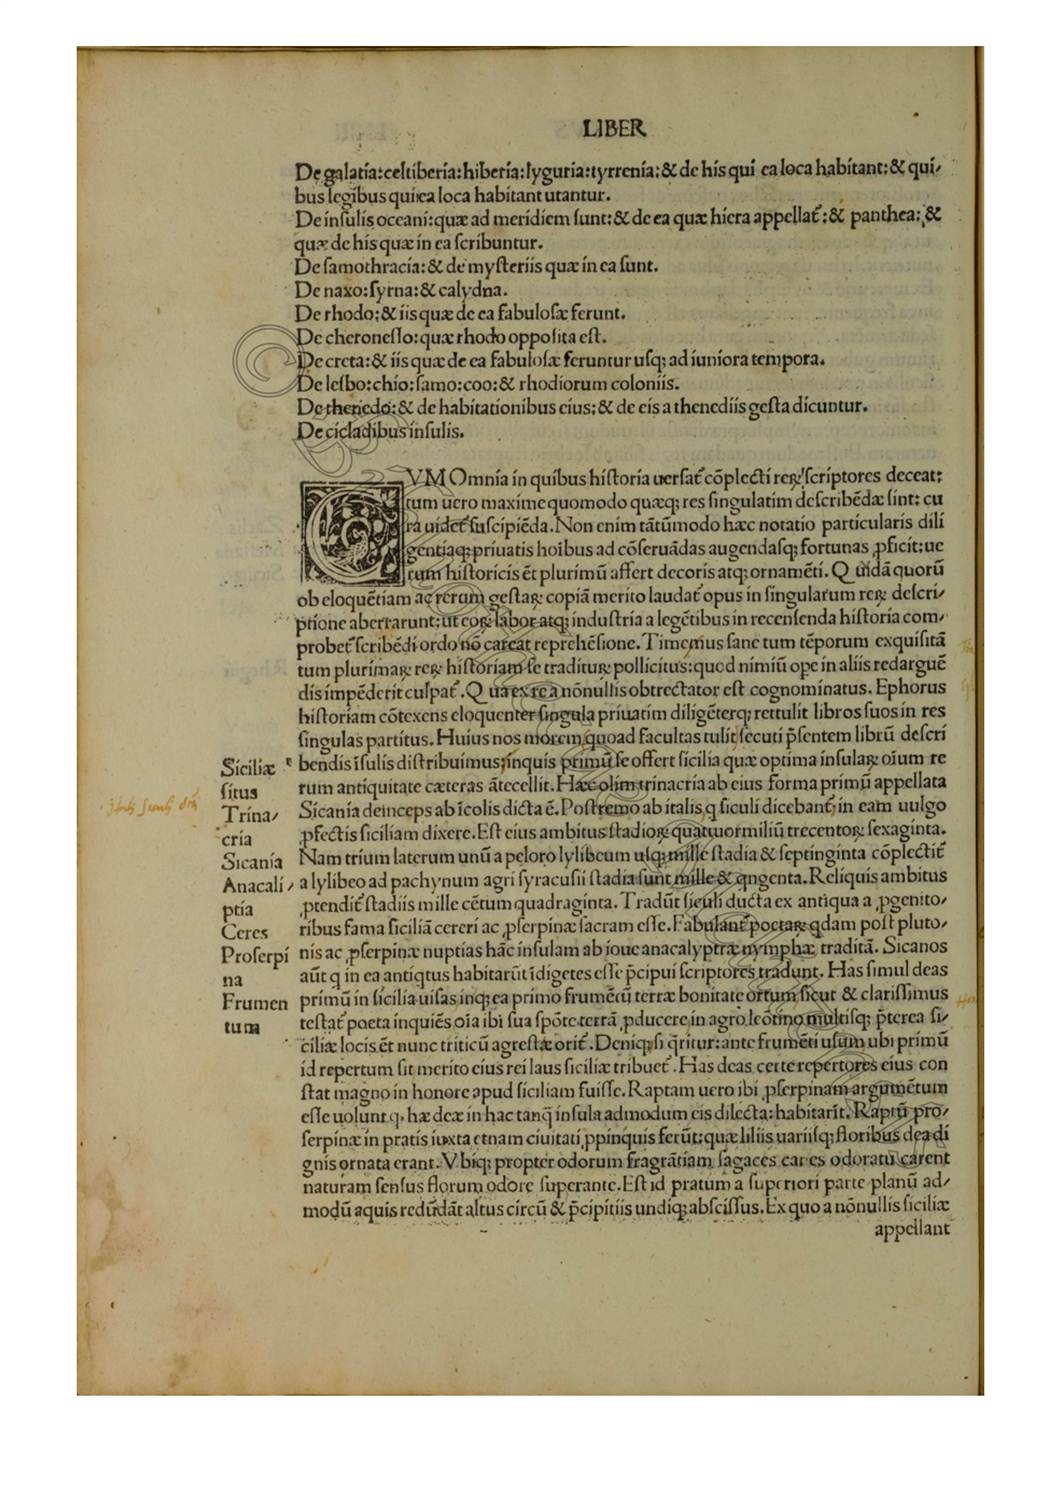 LIBER
De galatia:celtiberia:hiberia:lyguria:tyrrenia:& de his qui ea loca habitant:& qui/
bus legibus qui ea loca habitant utantur.
De insulis oceani:quæ ad meridiem sunt:& de ea quæ hiera appellat̃:& panthea:&
quæ de his quæ in ea scribuntur.
De samothracia:& de mysteriis quæ in ea sunt.
De naxo:syrna:& calydna.
De rhodo:& iis quæ de ea fabulosæ ferunt.
De cheronesso:quæ rhodo opposita est.
De creta:& iis quæ de ea fabulosæ feruntur usq; ad iuniora tempora.
De lesbo:chio:samo:coo:& rhodiorum coloniis.
De thenedo:& de habitationibus eius:& de eis a thenediis gesta dicuntur.
De cicladibus insulis.
CVM Omnia in quibus historia uersat̃ cõplecti reꝝ scriptores deceat:
tum uero maxime quomodo quæq; res singulatim describẽdæ sint: cu
ra uidet̃ suscipiẽda. Non enim tãtũmodo hæc notatio particularis dili
gentiaq; priuatis hoibus ad cõseruãdas augendasq; fortunas ꝓficit: ue
rum historicis ẽt plurimũ affert decoris atq; ornamẽti. Quidã quorũ
ob eloquẽtiam ac rerum gestaꝝ copiã merito laudat̃ opus in singularum reꝝ descri/
ptione aberrarunt: ut eoꝝ labor atq; industria a legẽtibus in recensenda historia com/
probet̃ scribẽdi ordo nõ careat reprehẽsione. Timæus sane tum tẽporum exquisitã
tum plurimaꝝ reꝝ historiam se traditurꝝ pollicitus: quod nimiũ ope in aliis redarguẽ
dis impẽderit culpat̃. Qua ex re a nõnullis obtrectator est cognominatus. Ephorus
historiam cõtexens eloquenter singula priuatim diligẽterq; rettulit libros suos in res
singulas partitus. Huius nos morem quoad facultas tulit secuti p̃sentem librũ descri
Siciliæ
situs
Trina/
cria
Sicania
Anacali/
ptia
Ceres
Proserpi
na
Frumen
tum
bendis ĩsulis distribuimus; inquis primũ se offert sicilia quæ optima insulaꝝ oĩum re
rum antiquitate cæteras ãtecellit. Hæc olim trinacria ab eius forma primũ appellata
Sicania deinceps ab ĩcolis dicta ẽ. Postremo ab italis, q siculi dicebant̃ in eam uulgo
ꝓfectis siciliam dixere. Est eius ambitus stadioꝝ quattuor miliũ trecentoꝝ sexaginta.
Nam trium laterum unũ a peloro lylibeum usq; mille stadia & septinginta cõplectit̃
a lylibeo ad pachynum agri syracusii stadia sunt mille & qngenta. Reliquis ambitus
ꝓtendit̃ stadiis mille cẽtum quadraginta. Tradũt siculi ducta ex antiqua a ꝓgenito/
ribus fama siciliã cereri ac ꝓserpinæ sacram esse. Fabulant̃ poetaꝝ qdam post pluto/
nis ac ꝓserpinæ nuptias hãc insulam ab ioue anacalyptræ nymphæ traditã. Sicanos
aũt q in ea antiqtus habitarũt ĩdigetes esse p̃cipui scriptores tradunt. Has simul deas
primũ in sicilia uisas inq; ea primo frumẽtũ terræ bonitate ortum sicut & clarissimus
testat̃ poeta inquiẽs oĩa ibi sua spõte terrã ꝓducere in agro leõtino multisq; p̃terea si/
ciliæ locis ẽt nunc triticũ agrestæ orit̃. Deniq; si qritur: ante frumẽti usum ubi primũ
id repertum sit merito eius rei laus siciliæ tribuet̃. Has deas certe repertores eius con
stat magno in honore apud siciliam fuisse. Raptam uero ibi ꝓserpinam argumẽtum
esse uolunt q. hæ deæ in hac tanq̃ insula admodum eis dilecta: habitarĩt. Raptũ pro/
serpinæ in pratis iuxta etnam ciuitati ꝓpinquis ferũt: quæ liliis uariisq; floribus dea di
gnis ornata erant. Vbiq; propter odorum fragrãtiam sagaces canes odoratu carent
naturam sensus florum odore superante. Est id pratum a superiori parte planũ ad/
modũ aquis redũdãt altus circũ & p̃cipitiis undiq; abscissus. Ex quo a nõnullis siciliæ
appellant